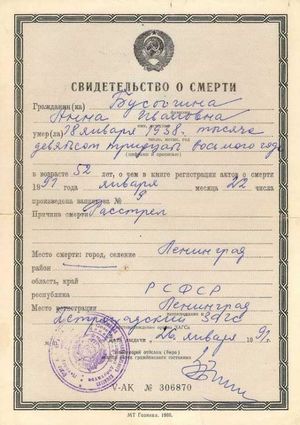 СВИДЕТЕЛЬСТВО О СМЕРТИ
Гражданин(ка) Бусыгина
Анна Ивановна
умер(ла) 18 января 1938. тысяча
девятьсот тридцать восьмого года
(цифрами и прописью)
в возрасте 52 лет, о чем в книге регистрации актов о смерти
1991 года января месяца 22 числа
произведена запись № 9
Причина смерти Расстрел
Место смерти: город, селение Ленинград
район
область, край
республика РСФСР
Место регистрации Ленинград
ЗАГС
выдачи 26 января 1991.
V-АК № 306870
МТ Гознака. 1988.